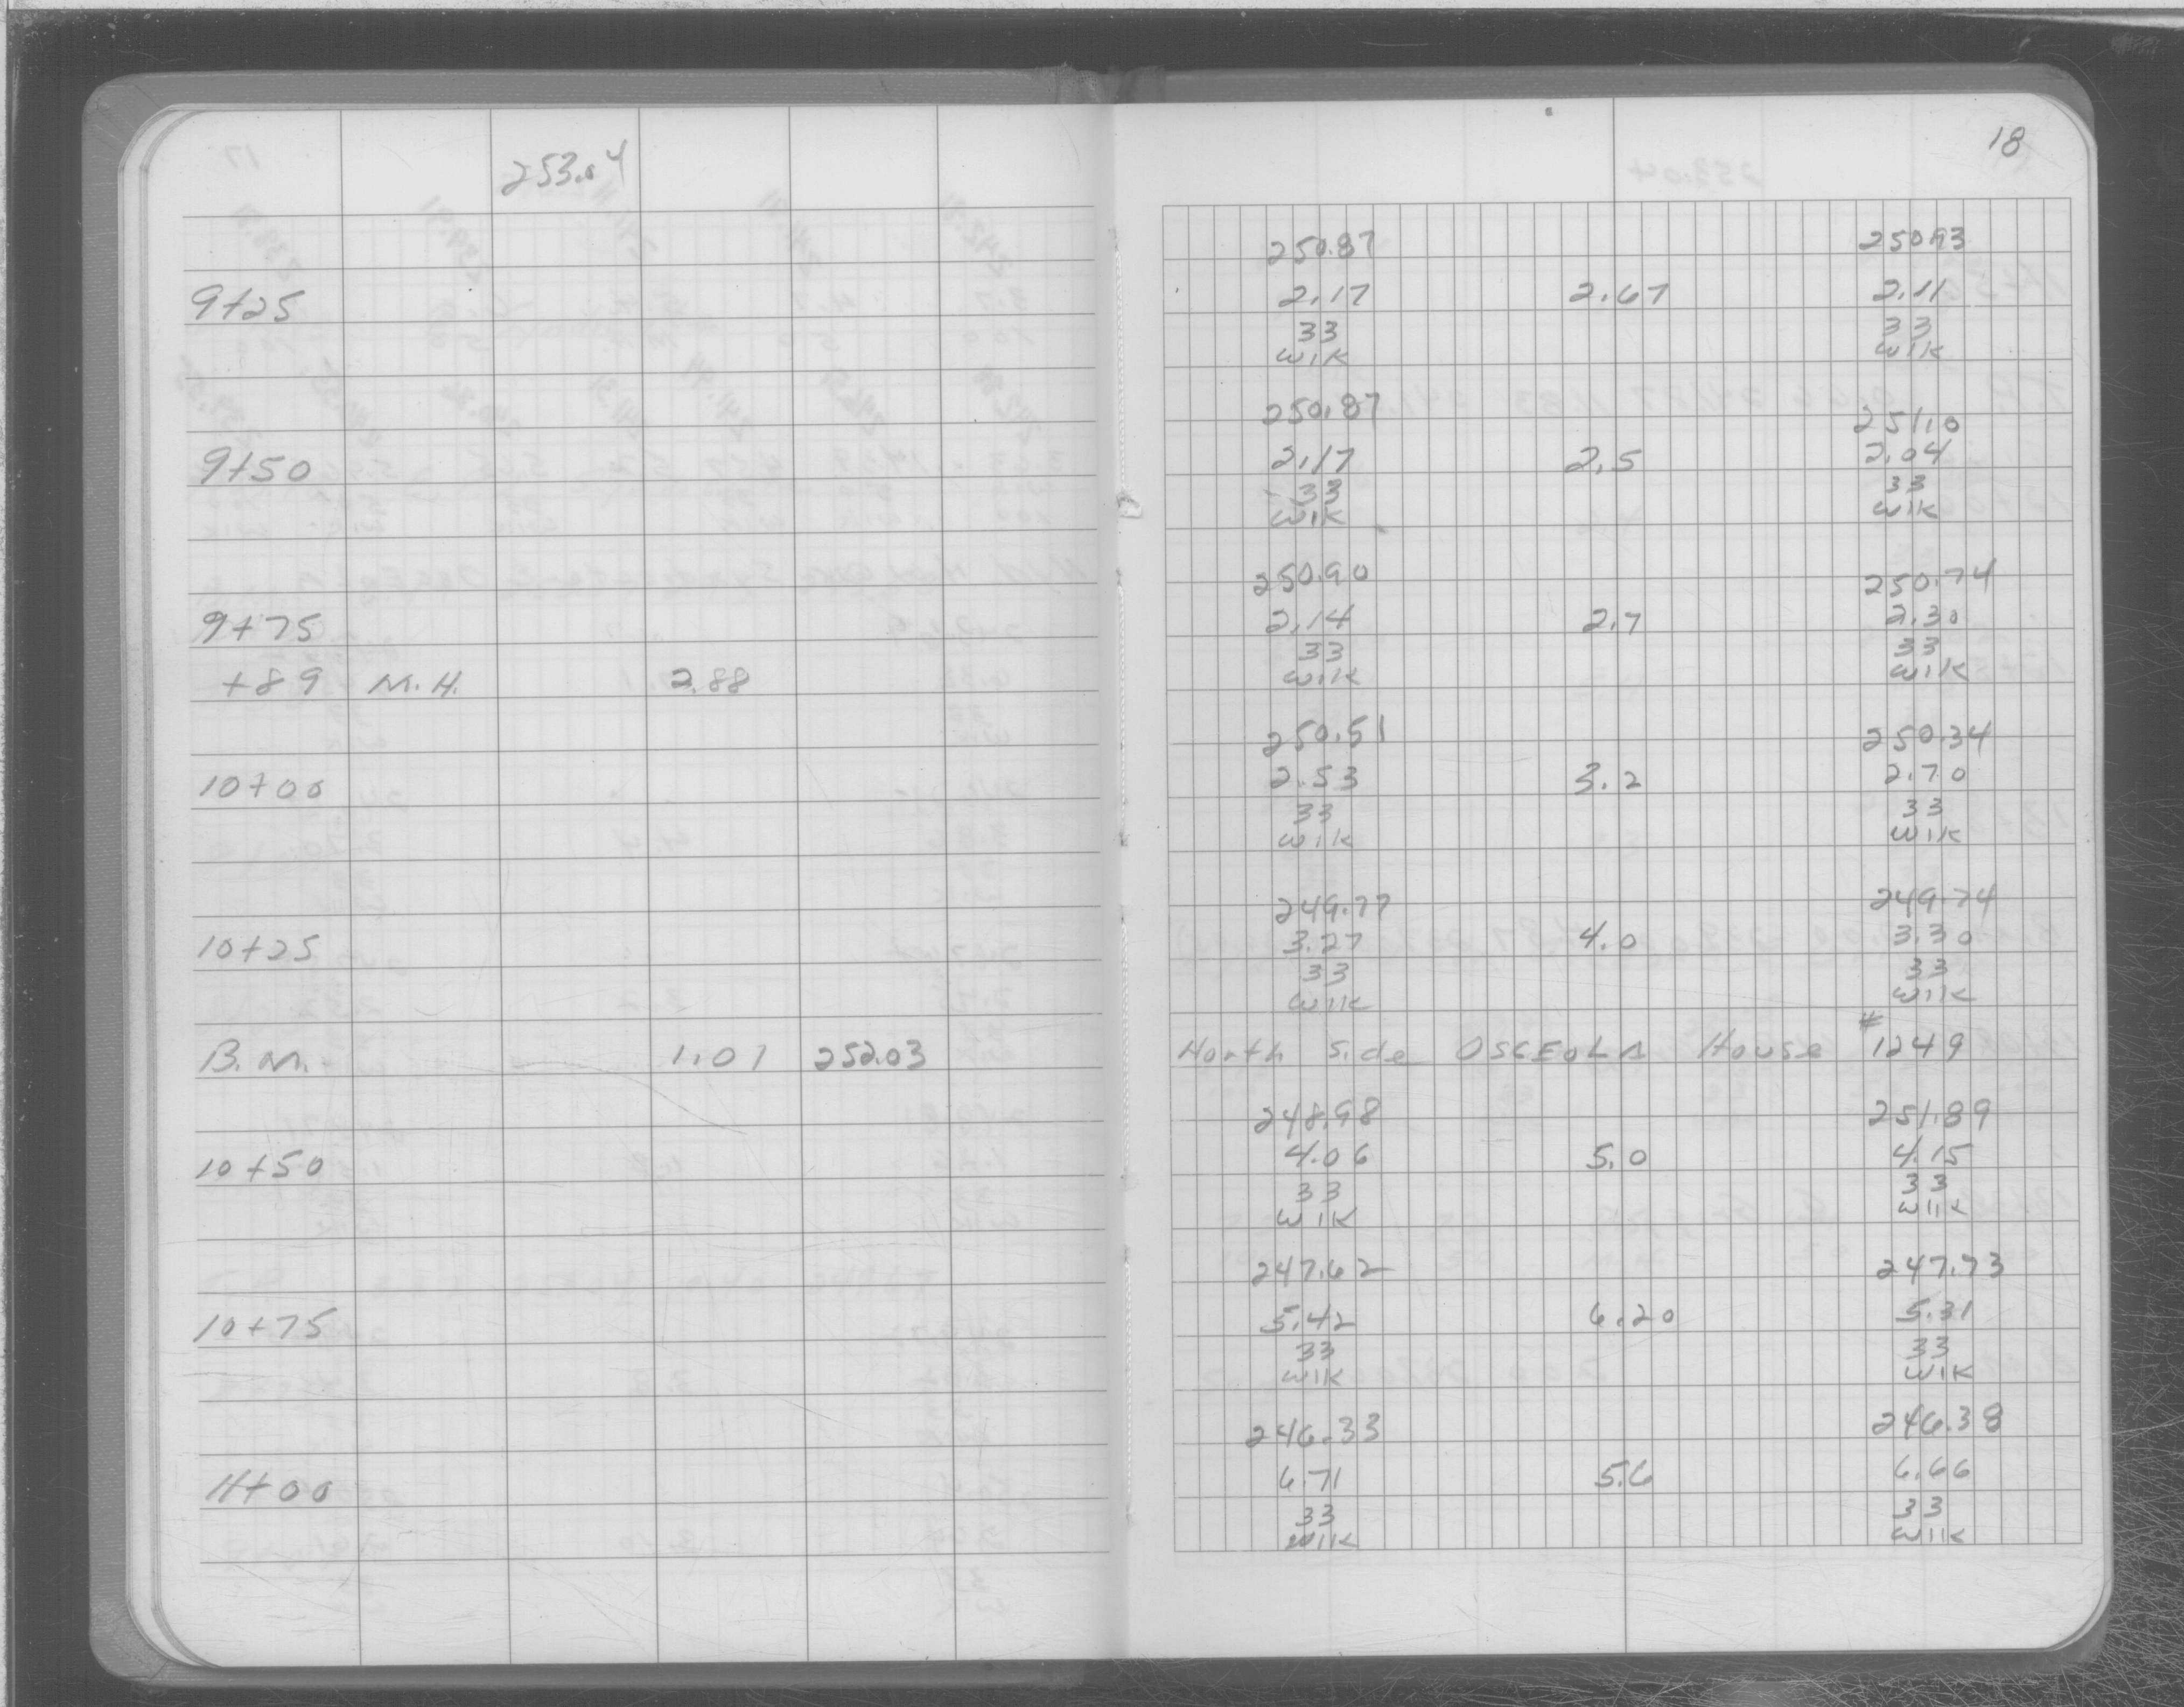 253.04
18
250.87 250.93
9+25 2.17 2.67 2.11
33 33
WIK WIK
250.87 251.0
9+50 2.17 2.5 2.04
33 33
WIK WIK
250.90 250.74
9+75 2.14 2.7 2.30
33 33
+89 M.H. 2.88 WIK WIK
250.51 250.34
10+00 2.53 3.2 2.70
33 33
WIK WIK
249.77 249.74
10+25 3.27 4.0 3.30
33 33
WIK WIK
B.M. 1.01 252.03 North Side OSCEOLA House #1249
248.98 251.89
10+50 4.06 5.0 4.15
33 33
WIK WIK
247.62 247.73
10+75 5.42 6.20 5.31
33 33
WIK WIK
246.33 246.38
11+00 6.71 5.6 6.66
33 33
WIK WIK